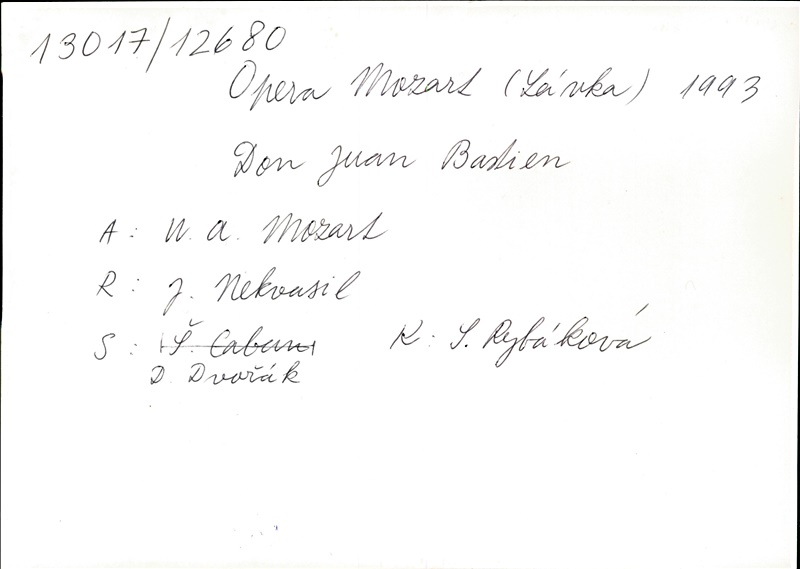 13017/12680
Opera Mozart (Lávka) 1993
Don Juan Bastien
A: W. A. Mozart
R: J. Nekvasil
S: Š. Caban K: S. Rybáková
D. Dvořák